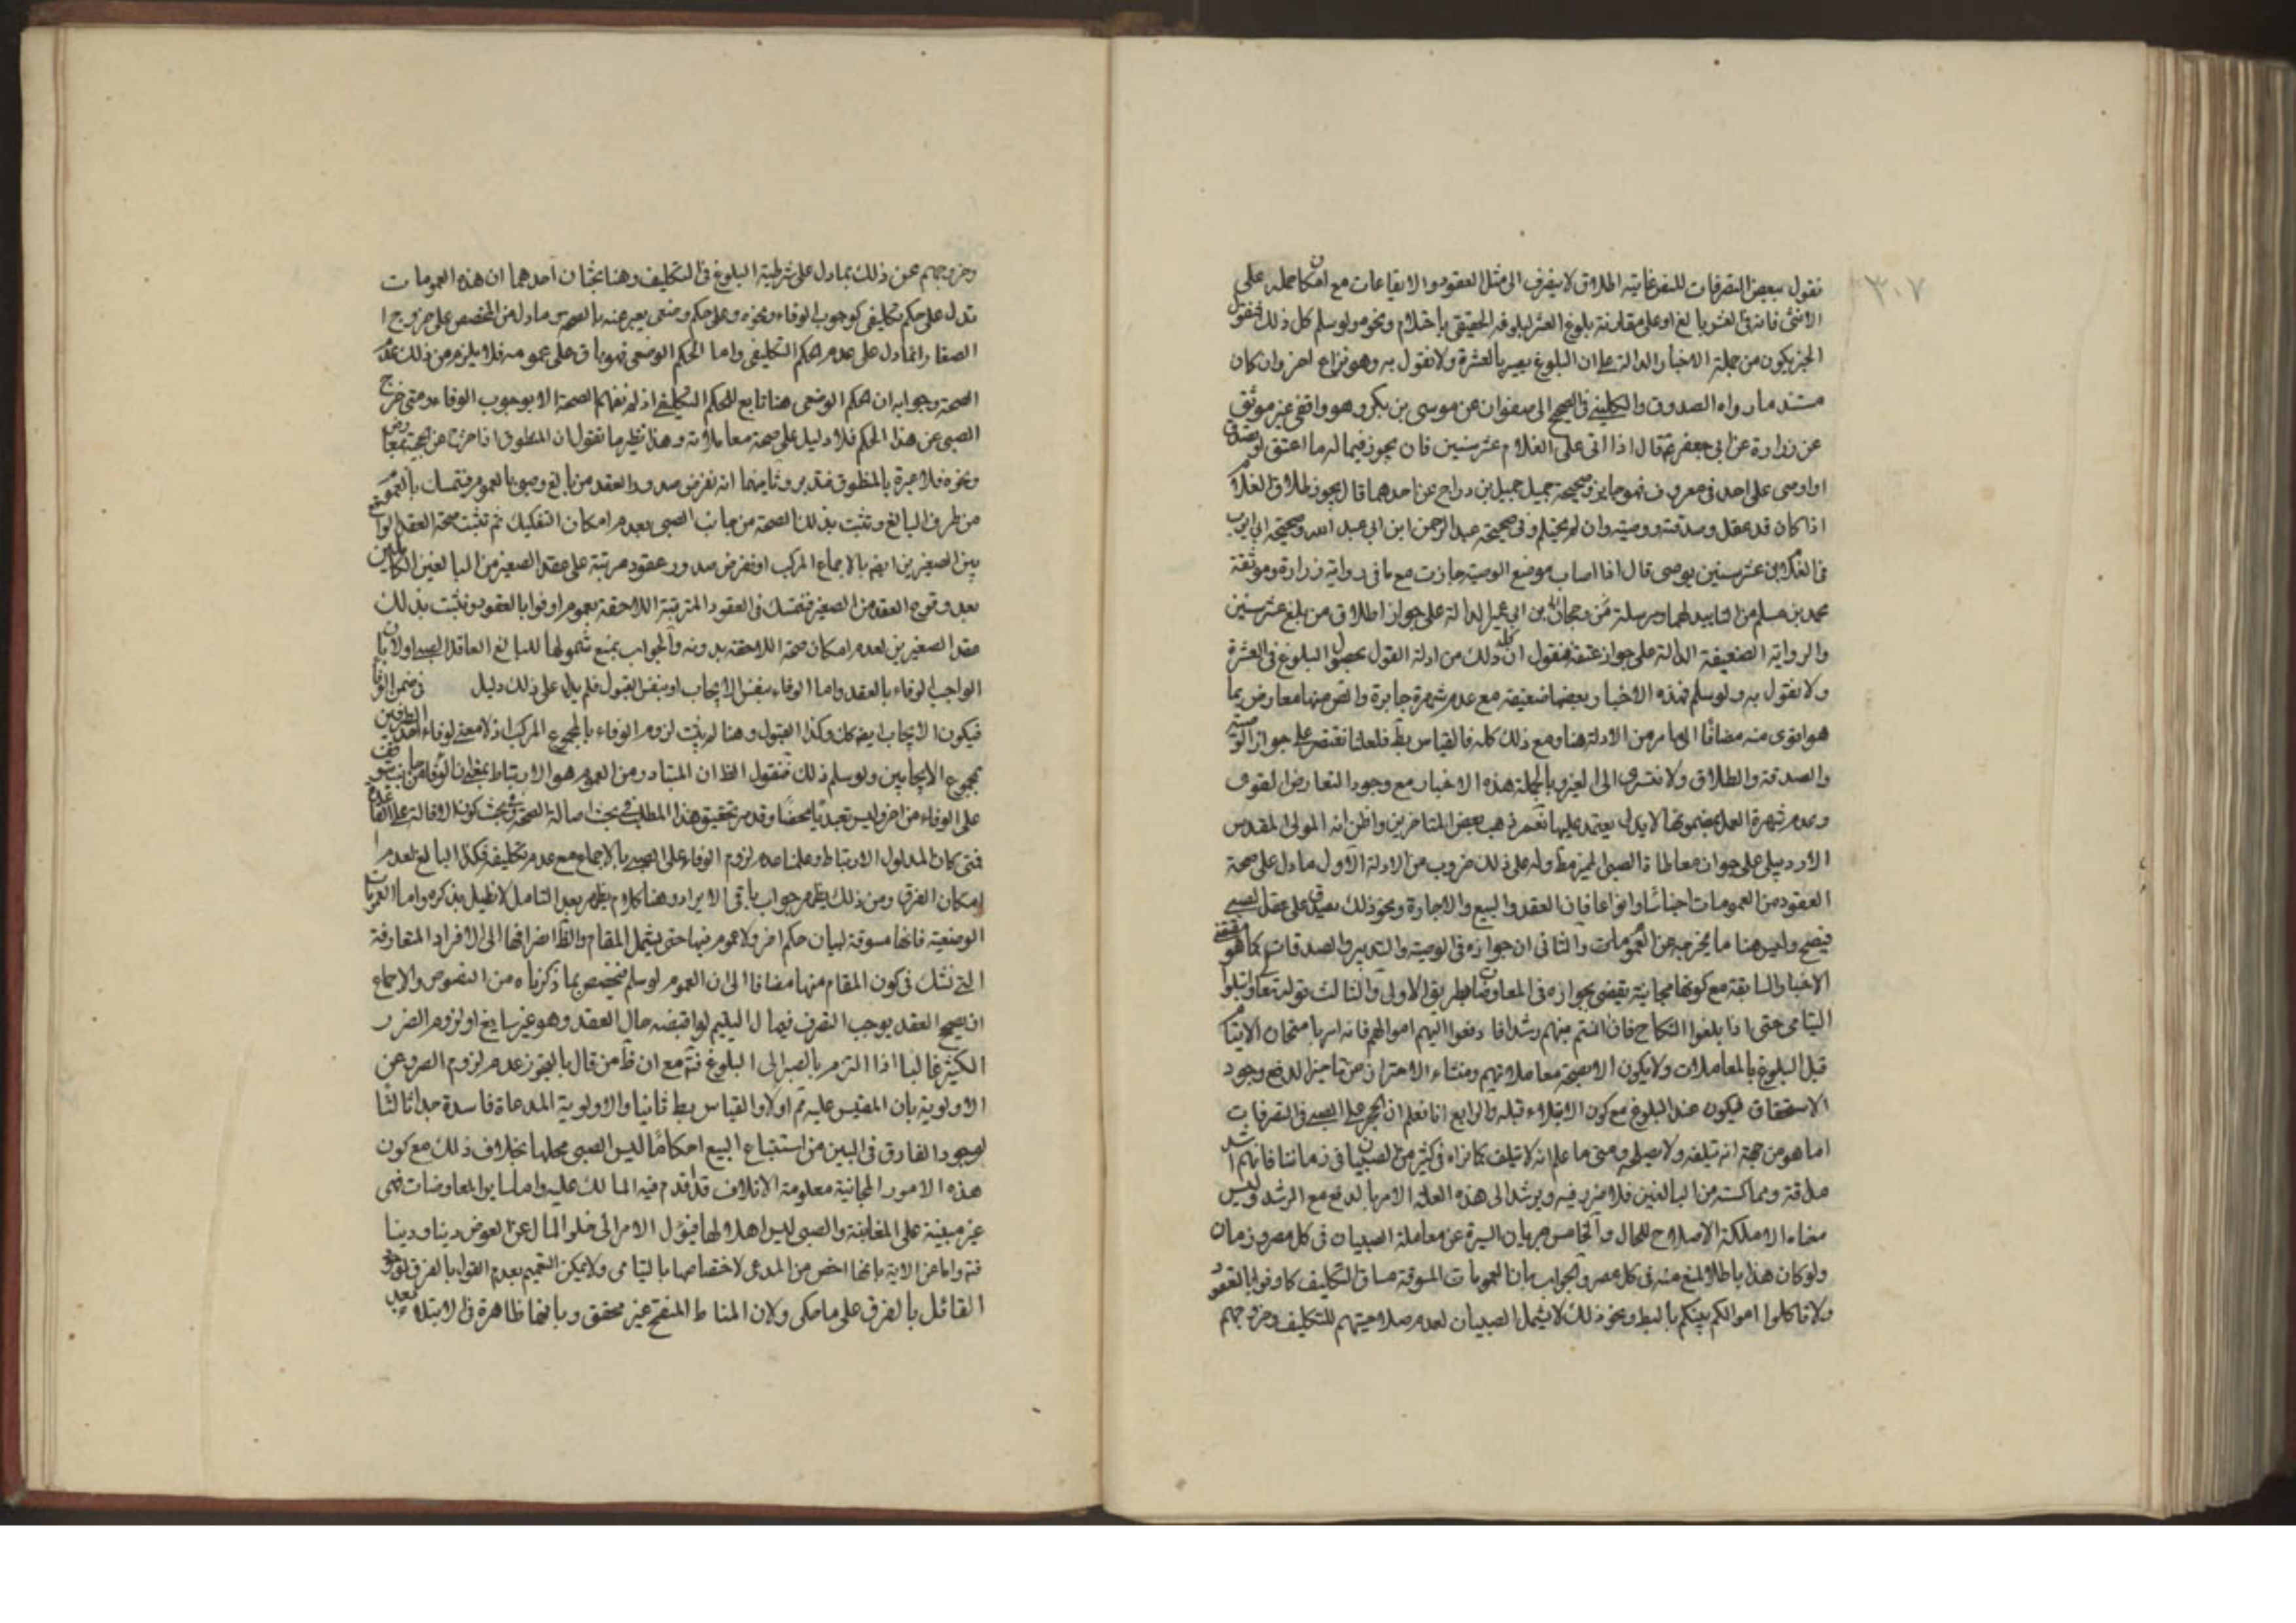 ٣٠٧
نقول ببعض التصرفات للتفرعاته اطلاق لا ينصرف الى مثل العقود والايقاعات مع امكان حمله على
الانثى فانه في العشر بالغ او على مقارنة بلوغ العشر لبلوغه الحقيقي باحتلام ونحوه ولو سلم كل ذلك فنقول
الخبر يكون من جملة الاخبار الدالة على ان البلوغ يصير بالعشرة ولا نقول به وهو نزاع اخر وان كان
مستند ما رواه الصدوق والكليني في الصحيح الى صفوان عن موسى بن بكر وهو واقفي غير موثق
عن زرارة عن ابي جعفر ع قال اذا اتى على الغلام عشر سنين فان يجوز فيما له ما اعتق او تصدق
او اوصى على احد في معروف فهو جايز وصحيحة جميل جميل بن دراج عن احدهما قال يجوز طلاق الغلام
اذا كان قد عقل وصدقته ووصيته وان لم يحتلم وفي صحيحة عبد الرحمن ابن ابي عبد الله وصحيحة ابي ايوب
في الغلام ابن عشر سنين يوصى قال اذا اصاب موضع الوصية جازت مع ما في رواية زرارة وموثقة
محمد بن مسلم من التاييد لهما ومرسلة بن ابي عمير الدالة على جواز اطلاق من بلغ عشر سنين
والرواية الضعيفة الدالة على جواز عتقه فنقول ان ذلك كله من ادلة القول بحصول البلوغ في العشرة
ولا نقول به ولو سلم فهذه الاخبار بعضها ضعيفة مع عدم شهرة جابرة والنص منها معارض بما
هو اقوى منه مضافا الى ما مر من الادلة هنا ومع ذلك كله فالقياس بط فلعلنا نقتصر على جواز الوصية
والصدقة والطلاق ولا نتسرى الى الغير وبالجملة هذه الاخبار مع وجود التعارض القوى
وعدم شهرة العمل بمضمونها لا يدلى يعتمد عليها نعم ذهب بعض المتاخرين واظن انه المولى المقدس
الاردبيلى على جواز معاطاة الصبى المميز مط وله على ذلك ضروب من الادلة الاول ما دل على صحة
العقود من العمومات اجناسا وانواعا فان العقد والبيع والاجارة ونحو ذلك يصدق على عقد الصبى
فيصح وليس هنا ما يخرجه من العمومات والثانى ان جوازه فى الوصية والتدبير والصدقات كما هو مقتضى
الاخبار السابقة مع كونها مجانية يقضى بجوازه فى المعاوضات بطريق الاولى والثالث قوله تعالى وابتلوا
اليتامى حتى اذا بلغوا النكاح فان انستم منهم رشدا فادفعوا اليهم اموالهم فانه امر بامتحان الايتام
قبل البلوغ بالمعاملات ولا يكون الا بصحة معاملاتهم ومنشاء الاحتراز من تاخير الدفع وجود
الاستحقاق فيكون عند البلوغ مع كون الابتلاء قبله والرابع انا نعلم ان الحجر على الصبى فى التصرفات
اما هو من جهة انه تيلفه ولا يصلحه ومتى ما علم انه لا يتلف كما نراه فى كثير من الصبيان فى زماننا فانهم اشد
ملاقة ومماكسة من البالغين فلا ضرر فيه ويرشد الى هذه العلة الامر بالدفع مع الرشد وليس
معناه الا ملكة الاصلاح للمال والخامس جريان السيرة عن معاملة الصبيان فى كل مصر وزمان
ولو كان هذا باطلا لمنع منه فى كل عصر والجواب بان العمومات المسوقة مساق التكليف كاوفوا بالعقود
ولا تاكلوا اموالكم بينكم بالبط ونحو ذلك لا يشمل الصبيان لعدم صلاحيتهم للتكليف وخروجهم
وخروجهم عن ذلك بما دل على شرطية البلوغ فى التكليف وهنا بحثان احدهما ان هذه العمومات
تدل على حكم تكليفى كوجوب الوفاء ونحوه وعلى حكم وضعى يعبر عنه بالصحة وما دل من المخصص على خروج ا
الصغار انما دل على عدم الحكم التكليفى واما الحكم الوضعى فهو باق على عمومه فلا يلزم من ذلك عدم
الصحة وجوابه ان الحكم الوضعى هنا تابع للحكم التكليفى اذ لم نفهم الصحة الا بوجوب الوفاء ومتى خرج
الصبى عن هذا الحكم فلا دليل على صحة معاملاته وهذا نظير ما نقول ان المنطوق اذا خرج عن الحجية بمعارض
ونحوه فلا عبرة بالمنطوق فتدبر وثانيهما انه نفرض صدور العقد من بالغ وصبى بالعموم فنتمسك بالعموم
من طرف البالغ وتثبت بذلك الصحة من جانب الصبى بعدم امكان التفكيك ثم تثبت صحة العقد لو وقع
بين الصغيرين ايضا بالاجماع المركب او نفرض صدور عقود مرتبة على عقد الصغير من البالغين الكاملين
بعد وقوع العقد من الصغير فنتمسك فى العقود المترتبة اللاحقة بعموم اوفوا بالعقود ونثبت بذلك
عقد الصغيرين لعدم امكان صحة اللاحقة بدونه والجواب بمنع شمولها للبالغ العاقد الصبى اولا بان
الواجب الوفاء بالعقد واما الوفاء بنفس الايجاب او بنفس القبول فلم يدل على ذلك دليل فى ضمن الوفا
فيكون الايجاب ايضا كك وكذا القبول وهنا لم يثبت لزوم الوفاء بالمجموع المركب اذ لا معنى لوفاء احد الطرفين
بمجموع الايجابين ولو سلم ذلك فنقول الظ ان المتبادر من العموم هو الارتباط بمعنى ان الوفا من جانب يتوقف
على الوفاء من اخر وليس تعبديا محضا وقد مر تحقيق هذا المطلب فى بحث اصالة الصحة وفى بحث كون الاقالة على القاعدة
فمتى كان المدلول الارتباط وعلمنا عدم لزوم الوفاء على الصبى بالاجماع مع عدم تكليفه فكذا البالغ لعدم ا
امكان الفرق ومن ذلك يظهر جواب باقى الايراد وهنا كلام يظهر بعد التامل لا نطيل بذكره واما العمومات
الوضعية فانها مسوقة لبيان حكم اخر ولا عموم فيها حتى يشمل المقام والظا انصرافها الى الافراد المتعارفة
التى نشك فى كون المقام منها مضافا الى ان العموم لو سلم فخصص بما ذكرناه من النصوص والاجماع
ان يصح العقد يوجب التصرف فيما ل اليتيم لو اقبضه حال العقد وهو غير سايغ او لزوم الضرر
الكثير غالبا اذا التزم بالصبر الى البلوغ فتم مع ان ظ من قال بالتجوز عدم لزوم الصبر وعن
الاولوية بان المقيس عليه ثم اولا والقياس بط ثانيا والاولوية المدعاة فاسدة جدا ثالثا
لوجود الفارق فى البين من استتباع البيع احكاما ليس الصبى محلها بخلاف ذلك مع كون
هذه الامور المجانية معلومة الاتلاف قد اقدم فيه المالك عليه واما ساير المعاوضات فهى
غير مبنية على المغابنة والصبى ليس اهلا لها فيؤل الامر الى خلو المال عن العوض دينا ودنيا
فتم واما عن الاية بانها اخص من المدعى لاختصاصها باليتامى ولا يمكن التعميم بعدم القول بالفرق لوجود
القائل بالفرق على ما حكى ولان المناط المنقح غير محقق وبانها ظاهرة فى الابتلاء بعد